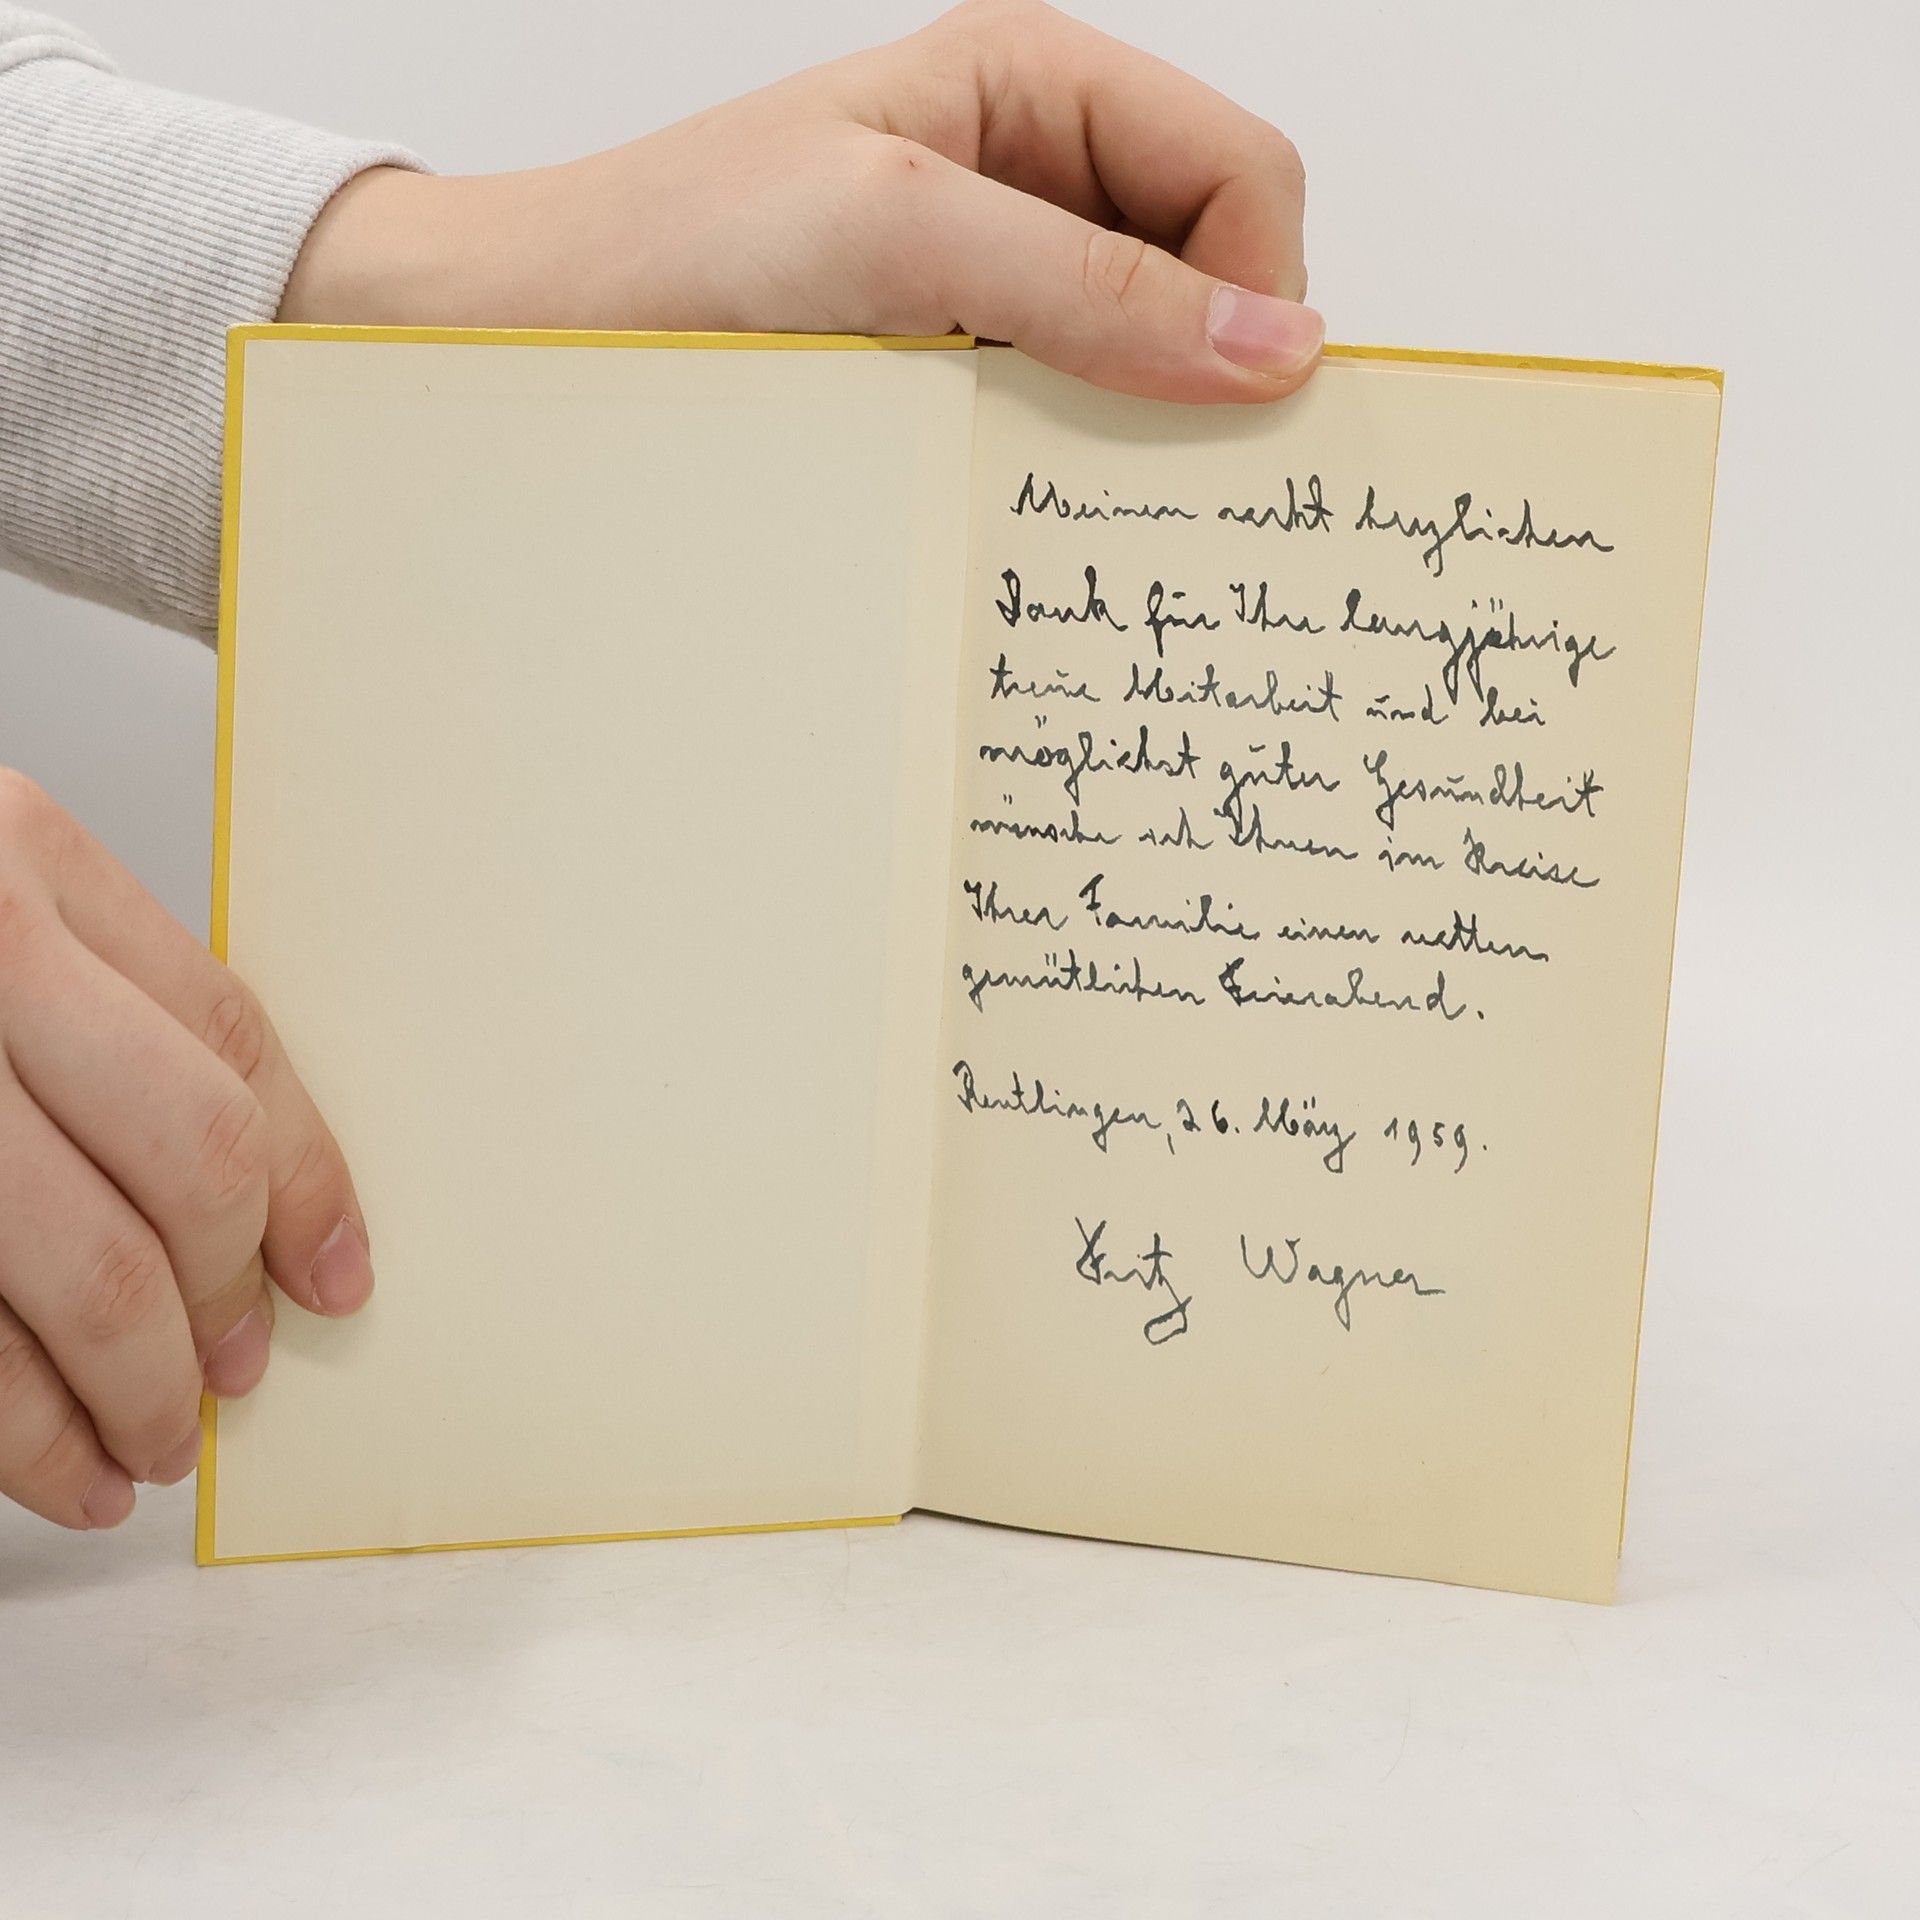 Meinen recht herzlichen
Dank für Ihre langjährige
treue Mitarbeit und bei
möglichst guter Gesundheit
wünsche ich Ihnen im Kreise
Ihrer Familie einen netten
gemütlichen Feierabend.
Reutlingen, 26. März 1959.
Fritz Wagner